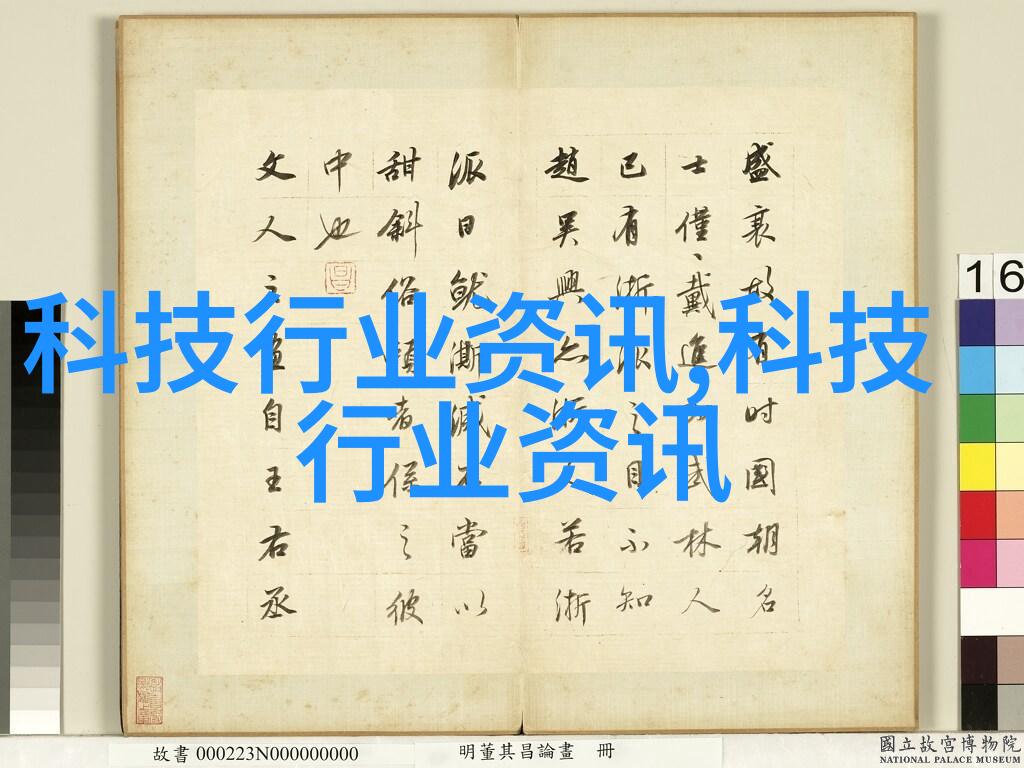 科技行业资讯,科技
行业资讯
盛衰故有時國朝名
士僅、戴進為武林人
已有浙派之目不知
趙吳興亦浙人若浙
派日就澌滅不當以
甜斜俗賴者係之彼
中也
文人之畫自王右丞
16
故書 000223N000000000
明董其昌論畫 冊
國立故宮博物院
NATIONAL PALACE MUSEUM